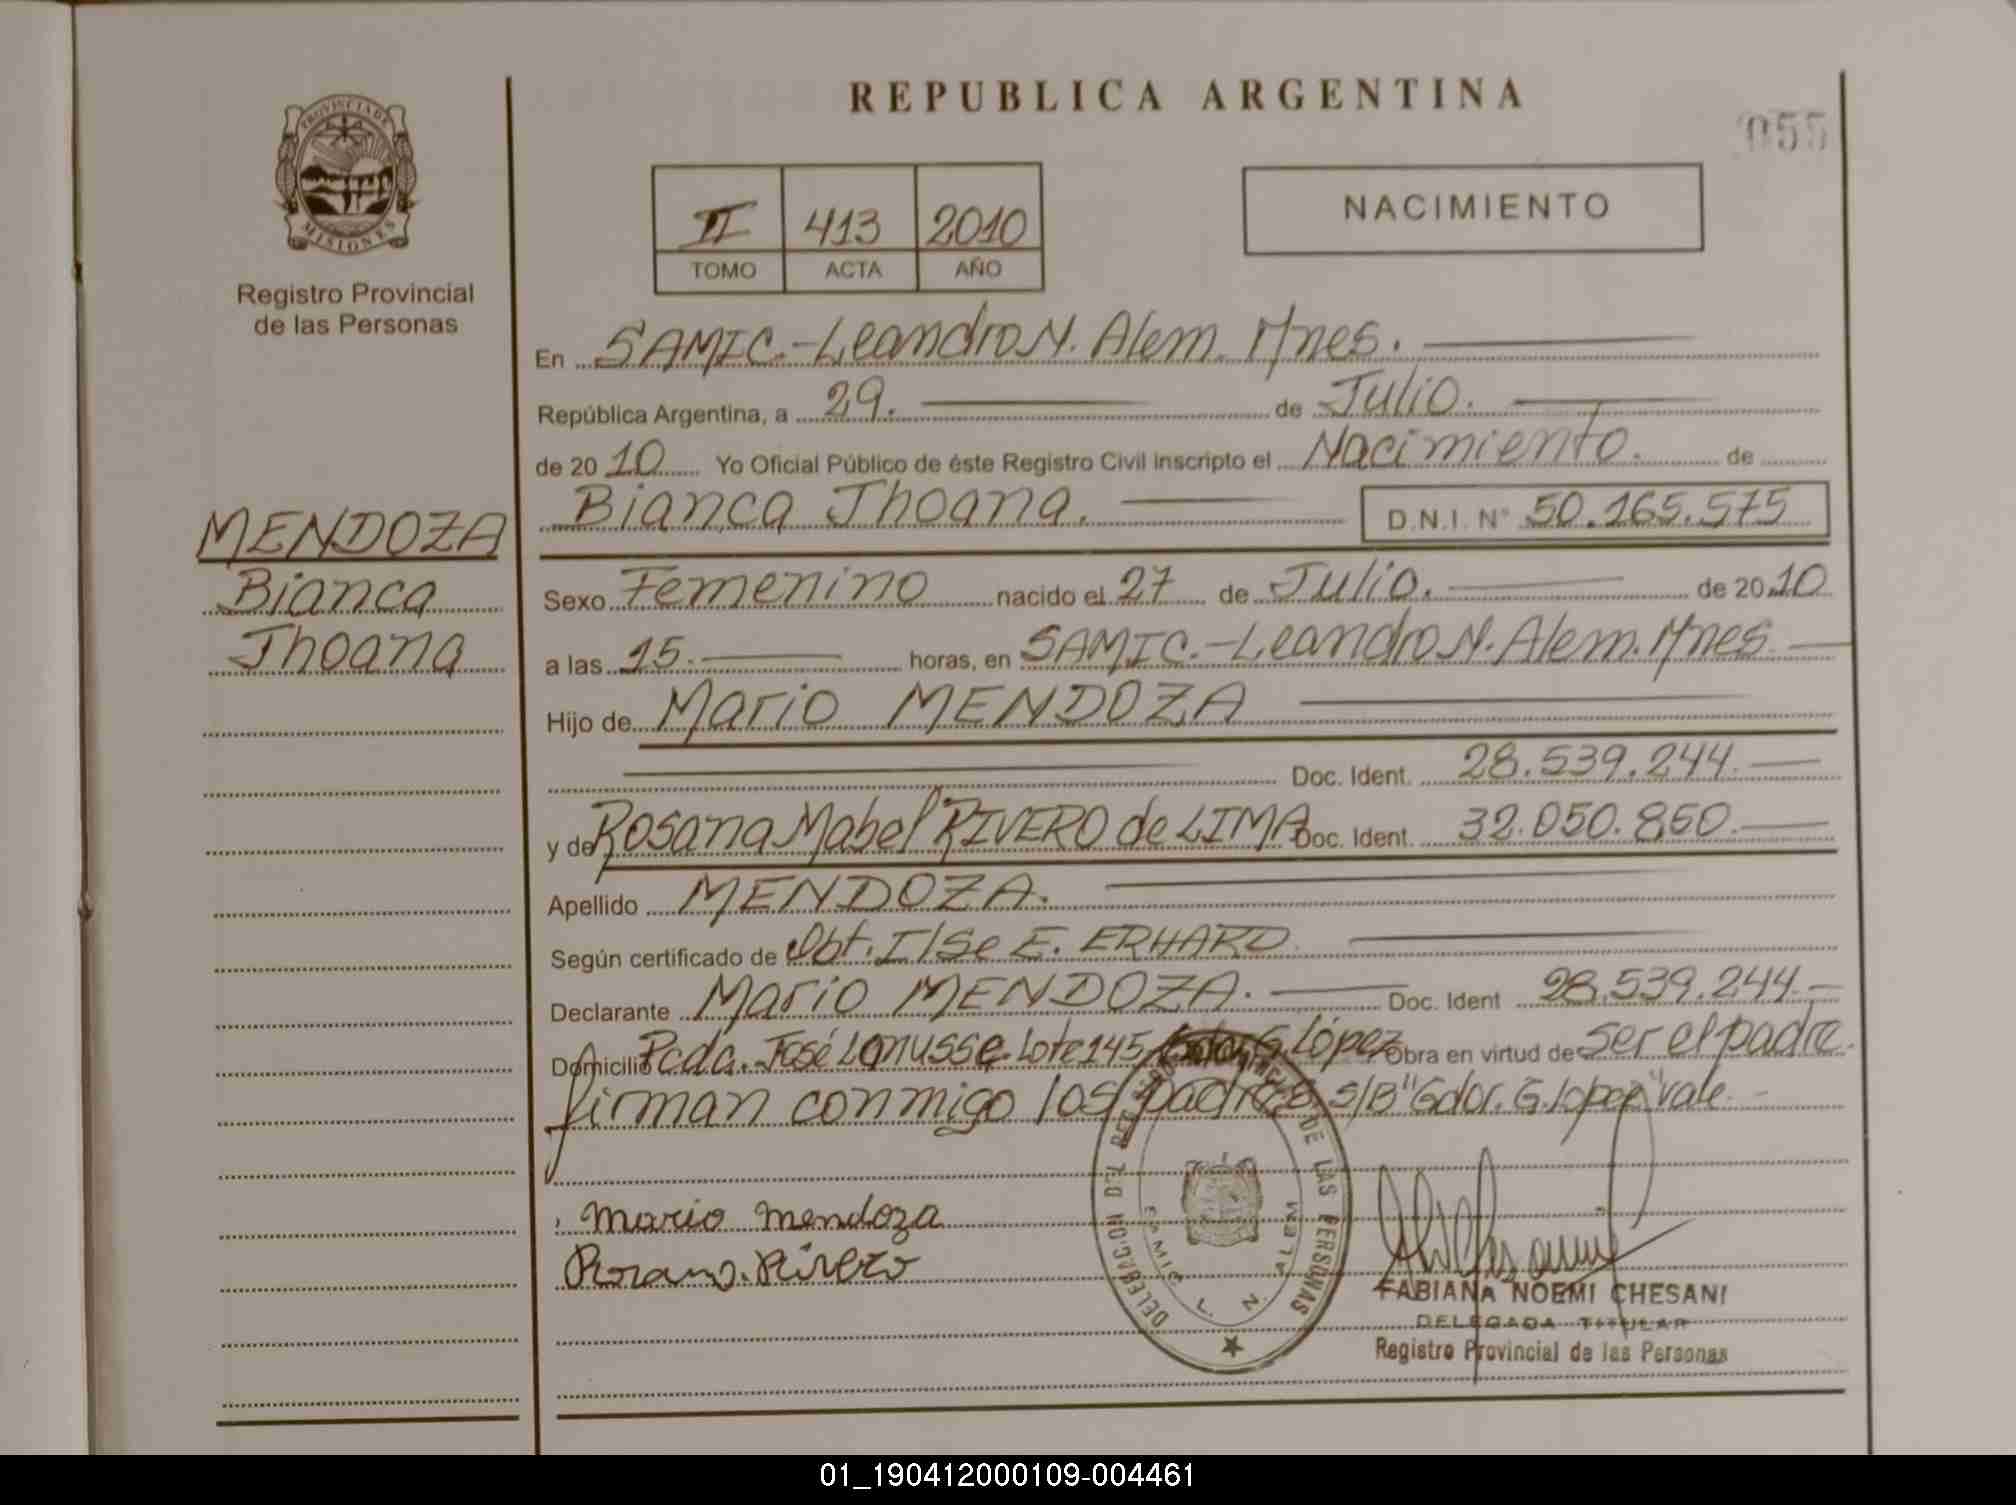 REPUBLICA ARGENTINA
055
PROVINCIA DE MISIONES
Registro Provincial
de las Personas
II 413 2010
TOMO ACTA AÑO
NACIMIENTO
En SAMIC.-Leandro N. Alem. Mnes.
República Argentina, a 29. de Julio.
de 2010 Yo Oficial Público de éste Registro Civil inscripto el Nacimiento. de
Bianca Jhoana. D.N.I. N° 50.165.575
MENDOZA
Bianca
Jhoana
Sexo Femenino nacido el 27 de Julio. de 2010
a las 15. horas, en SAMIC.-Leandro N. Alem. Mnes
Hijo de Mario MENDOZA
Doc. Ident. 28.539.244.
y de Rosana Mabel RIVERO de LIMA Doc. Ident. 32.050.860.
Apellido MENDOZA.
Según certificado de Obt. Ilse E. ERHARD.
Declarante Mario MENDOZA. Doc. Ident 28.539.244.
Domicilio Pcda. José Lanusse. Lote 145, Gdor. G. López Obra en virtud de ser el padre.
firman conmigo los padres S/B "Gdor. G. Lopez" vale.
Mario Mendoza
Rosana. Rivero
DE LAS PERSONAS
SAMIC L. N. ALEM
FABIANA NOEMI CHESANI
DELEGADA TITULAR
Registro Provincial de las Personas
01_190412000109-004461